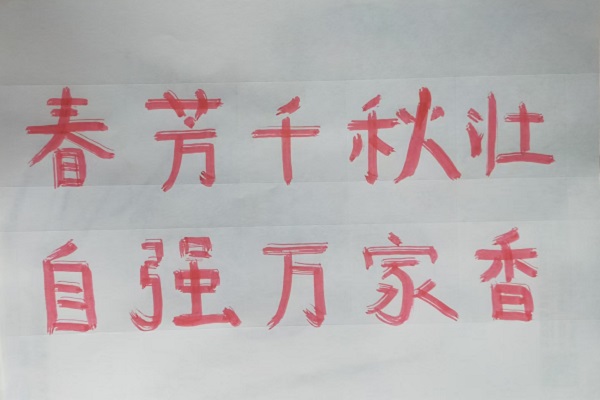 春芳千秋壮
自强万家香